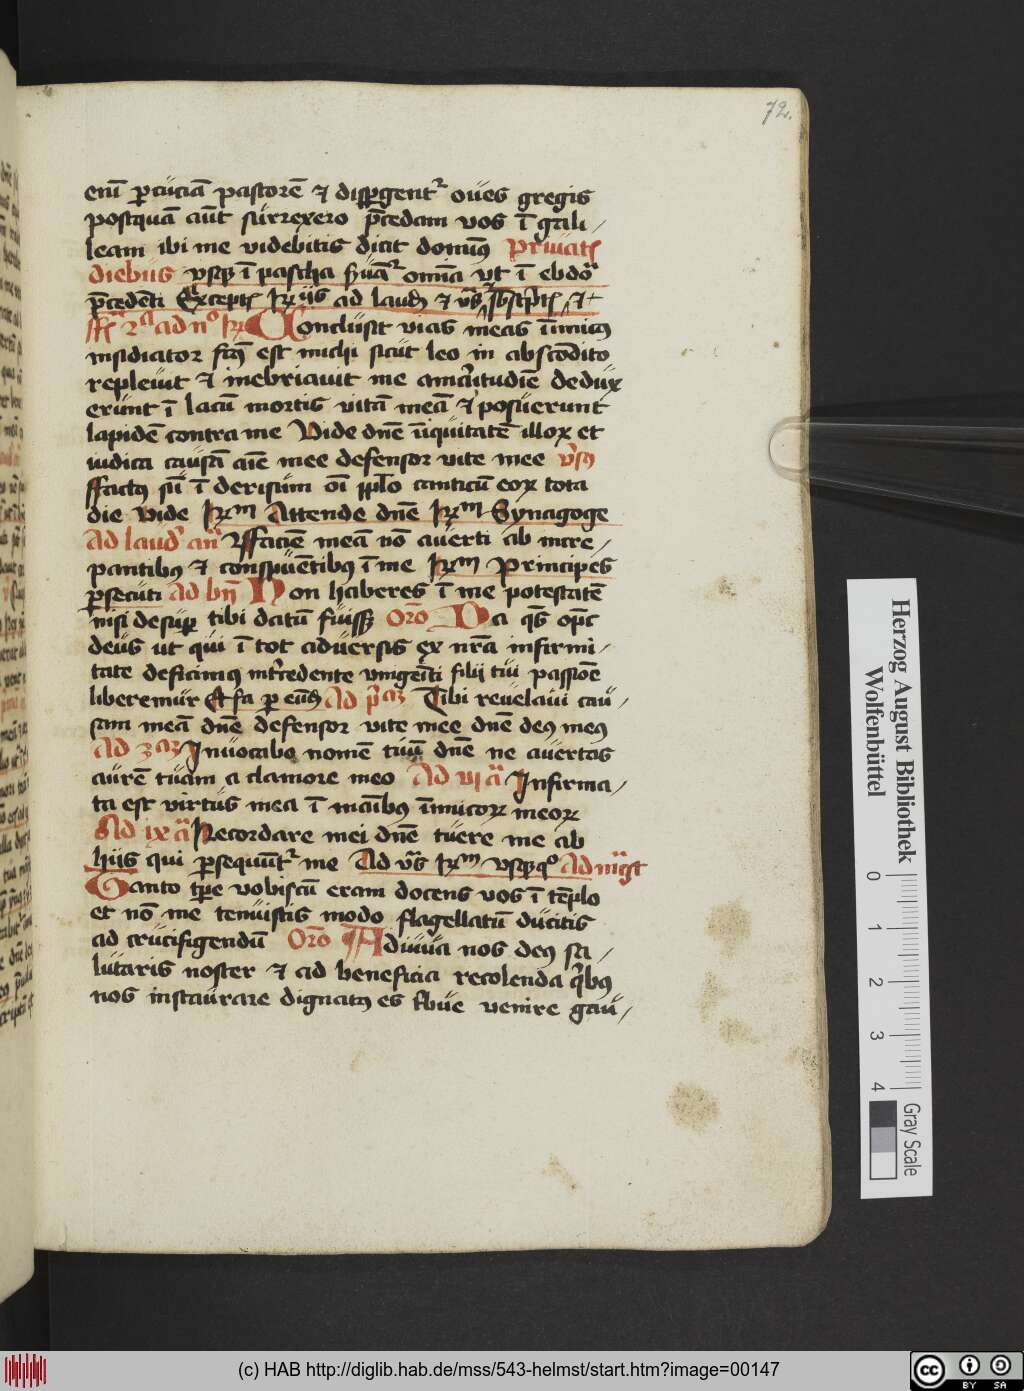 72.
eni᷉ ꝑcuciā pastorē ⁊ dispgent᷑ oues gregis
postquā aut̄ surrexero p̄cedam vos ī gali⸗
leam ibi me videbitis dicit domin᷒ Priuatꝭ
diebus vsqꝫ ī pascha omīa vt ī ebdoᵃ
p̄cedēti Exceptꝭ ad laudꝭ ⁊
Conclusit vias meas īimic᷒
insidiator fctūs est michi sicut leo in abscondito
repleuit ⁊ inebriauit me amaritudīe dedux
erunt ī lacū mortis vitā meā ⁊ posuerunt
lapidē contra me Vide dn̄e īiquitatē illoꝝ et
iudica causā aīe mee defensor vite mee v̄sꝰ
ffactꝰ sū ī derisum oī pplō canticū eoꝝ tota
die Vide Attende dn̄e Synagoge
Ad laudꝭ an̄ ffaciē meā nō auerti ab incre⸗
pantibꝰ ⁊ conspuētibꝰ ī me Principes
ꝑsecuti Ad bn̄ Non haberes ī me potestatē
nisi desuꝑ tibi datū fuissꝫ Orō Da qs̄ opc̄
deus ut qui ī tot aduersis ex nr̄a infirmi⸗
tate deficimꝰ int̄cedente vnigeīti filij tui passiōe
liberemur Ad pͣmaꝫ Tibi reuelaui cau⸗
sam meā dn̄e defensor vite mee dn̄e deꝰ meꝰ
Ad 3aꝫ Inuocabo nomē tuū dn̄e ne auertas
aurē tuam a clamore meo Ad vjᵃ Infirma⸗
ta est virtus mea ī manibꝰ īimicoꝝ meoꝝ
Ad ixᵃ Recordare mei dn̄e tuere me ab
hijs qui ꝑsequūt᷑ me Ad vs̄ vsqꝫquo Ad mgͣt
Quanto tꝑe vobiscū eram docens vos ī tēplo
et nō me tenuistis modo flagellatū ducitis
ad crucifigendū Orō Adiuua nos deꝰ sa⸗
lutaris noster ⁊ ad beneficia recolenda qͥbꝰ
nos instaurare dignatꝰ es tͥbue venire gau⸗
Herzog August Bibliothek
Wolfenbüttel
0 1 2 3 4
Gray Scale
(c) HAB http://diglib.hab.de/mss/543-helmst/start.htm?image=00147
cc BY SA